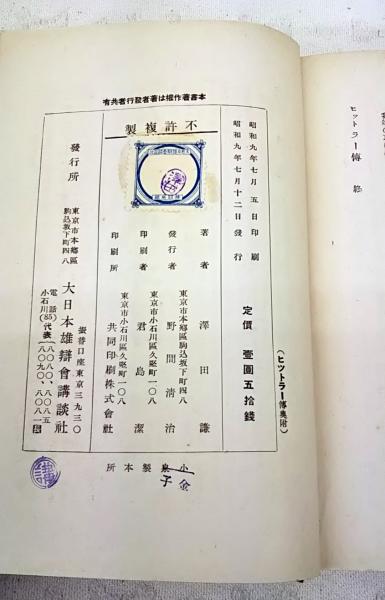 ヒットラー傳 終
(ヒットラー傳奧附)
本書著作權は著者發行者共有
不許複製
昭和九年七月五日印刷
昭和九年七月十二日發行
定價 壹圓五拾錢
著者 澤田謙
東京市本鄕區駒込坂下町四八
發行者 野間淸治
東京市小石川區久堅町一〇八
印刷者 君島潔
東京市小石川區久堅町一〇八
印刷所 共同印刷株式會社
發行所
東京市本鄕區
駒込坂下町四八
大日本雄辯會講談社
振替口座東京三九三〇
電話
小石川(85)代表
小金
泉子
製本所